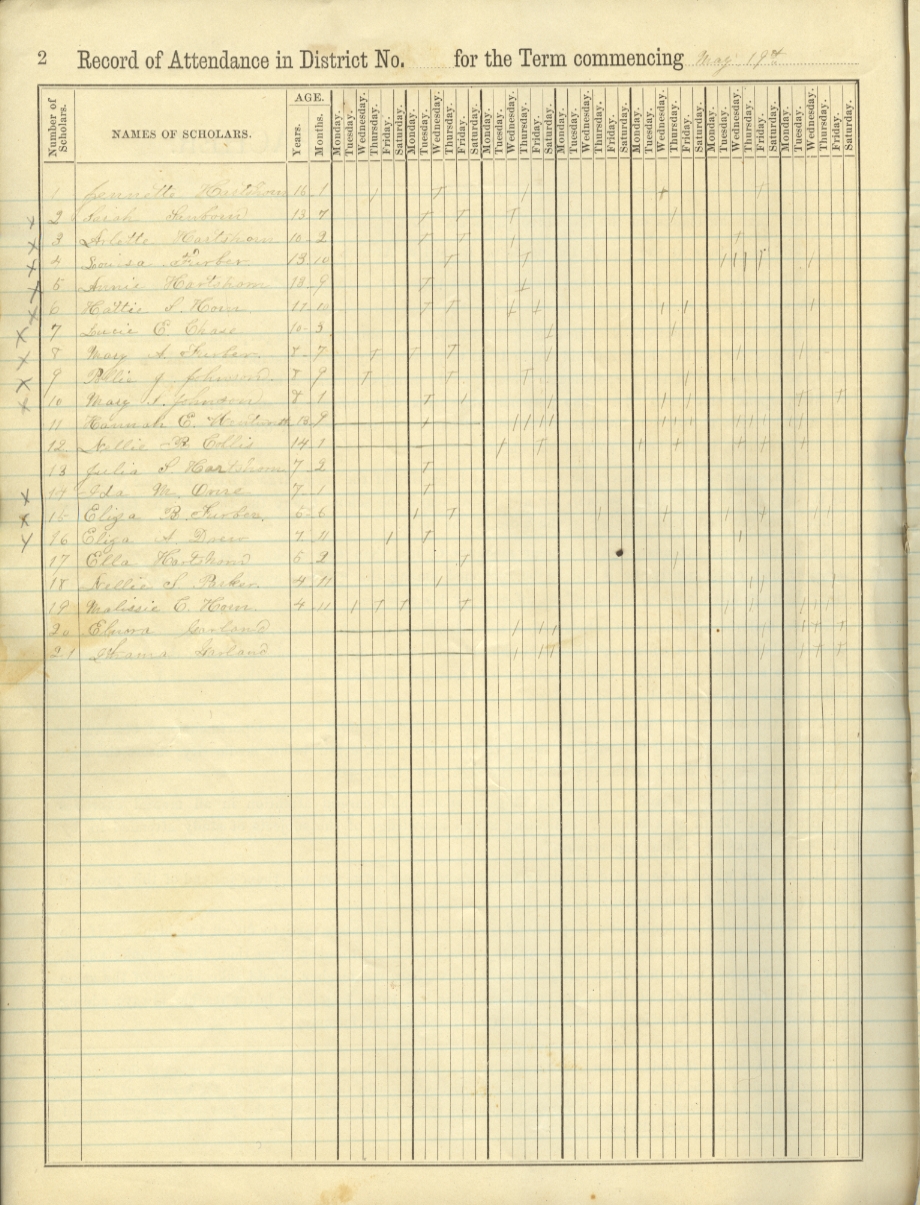 2 Record of Attendance in District No. for the Term commencing May 19th
Number of Scholars. NAMES OF SCHOLARS. AGE. Years. Months. Monday. Tuesday. Wednesday. Thursday. Friday. Saturday. Monday. Tuesday. Wednesday. Thursday. Friday. Saturday. Monday. Tuesday. Wednesday. Thursday. Friday. Saturday. Monday. Tuesday. Wednesday. Thursday. Friday. Saturday. Monday. Tuesday. Wednesday. Thursday. Friday. Saturday. Monday. Tuesday. Wednesday. Thursday. Friday. Saturday. Monday. Tuesday. Wednesday. Thursday. Friday. Saturday.
1 Jennette Hartshorn 16 1
2 13 7
3 Arlette Hartshorn 10 2
4 Louisa Furber 13 10
5 Annie Hartshorn 13 9
6 Hattie S. Horn 11 10
7 Lucie E. Chase 10 3
8 Mary A. Furber 8 7
9 J. Johnson 8 9
10 Mary A. Johnson 7 1
11 Hannah E. 9
12 Nellie B. Collis 14 1
13 Julia S. Hartshorn 7 2
14 Ida M. 7 1
15 Eliza B. Furber. 5 6
16 Eliza A. Drew 7 11
17 Ella Hartshorn 5 2
18 Nellie S Parker. 4 11
19 Malissie C. Horn. 4 11
20 Elnora Garland
21 Garland